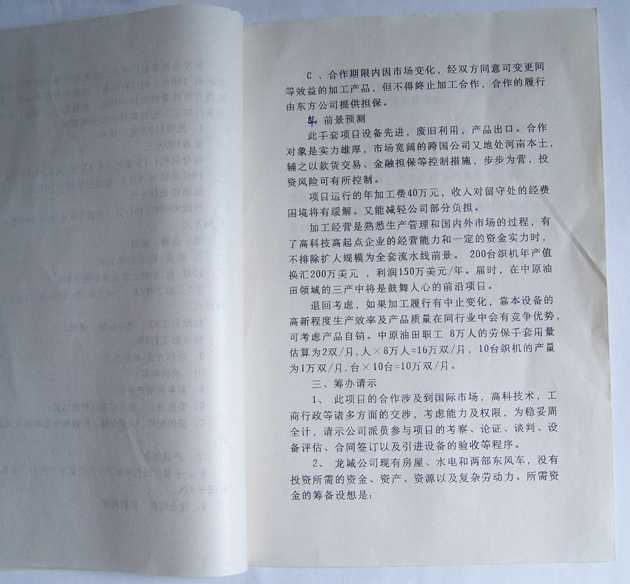 C 、合作期限内因市场变化，经双方同意可变更同
等效益的加工产品，但不得终止加工合作，合作的履行
由东方公司提供担保。
4. 前景预测
此手套项目设备先进，废旧利用，产品出口。合作
对象是实力雄厚，市场宽阔的跨国公司又地处河南本土，
辅之以款货交易、金融担保等控制措施，步步为营，投
资风险可有所控制。
项目运行的年加工费40万元，收人对留守处的经费
困境将有缓解。又能减轻公司部分负担。
加工经营是熟悉生产管理和国内外市场的过程，有
了高科技高起点企业的经营能力和一定的资金实力时，
不排除扩人规模为全套流水线前景。 200台织机年产值
换汇200万美元 ，利润150万美元/年。届时，在中原油
田领域的三产中将是鼓舞人心的前沿项目。
退回考虑，如果加工履行有中止变化，靠本设备的
高新程度生产效率及产品质量在同行业中会有竞争优势，
可考虑产品自销。中原油田职工 8万人的劳保手套用量
估算为2双/月，人×8万人=16万双/月， 10台织机的产量
为1万双/月，台×10台=10万双/月。
三、筹办请示
1、 此项目的合作涉及到国际市场，高科技术，工
商行政等诸多方面的交涉，考虑能力及权限，为稳妥周
全计，请示公司派员参与项目的考察、论证、谈判、设
备评估、合同签订以及引进设备的验收等程序。
2、 龙城公司现有房屋、水电和两部东风车，没有
投资所需的资金、资产、资源以及复杂劳动力。所需资
金的筹备设想是：